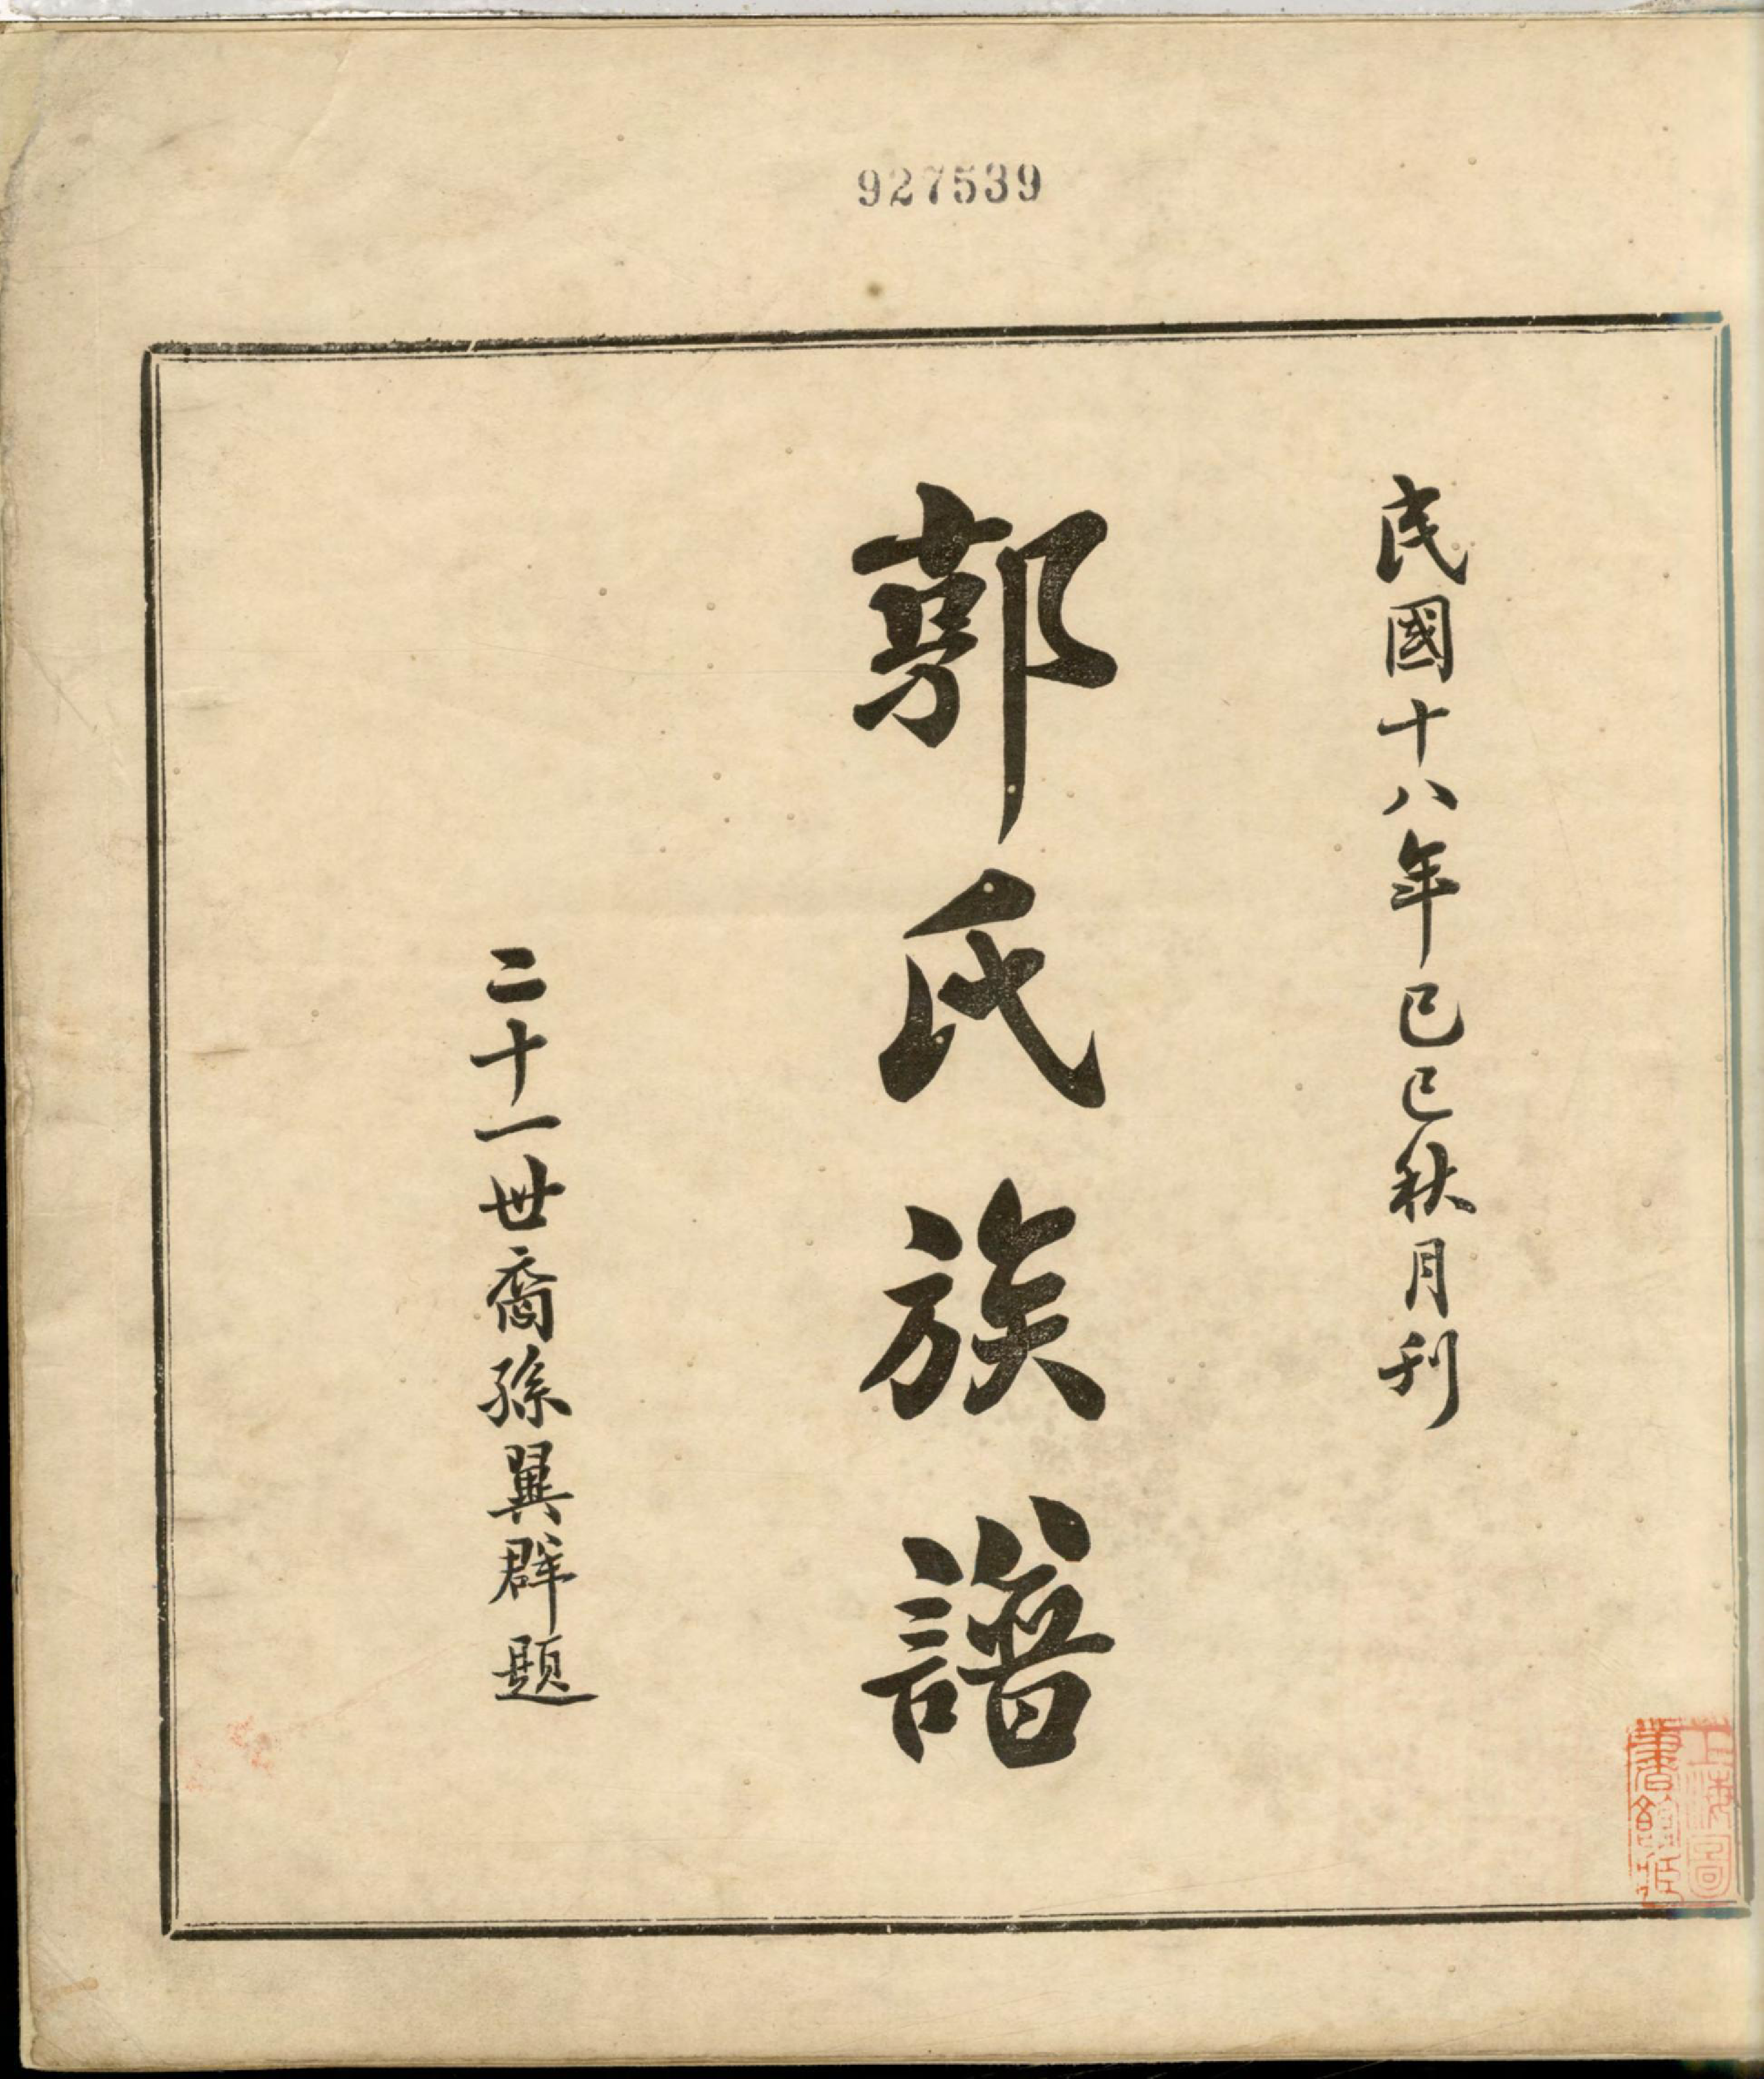 927539
民國十八年己巳秋月刊
郭氏族譜
二十一世裔孫翼群題
上海圖
書館藏